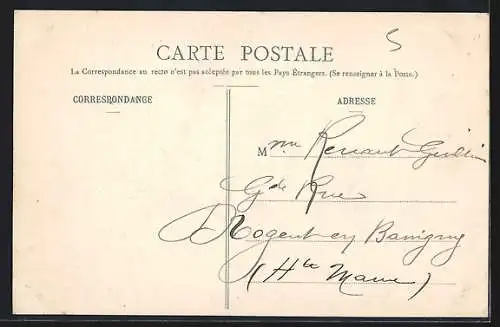 5
CARTE POSTALE
La Correspondance au recto n'est pas acceptée par tous les Pays Étrangers. (Se renseigner à la Poste.)
CORRESPONDANCE
ADRESSE
Mme Renaut
Gde Rue
Nogent en Bassigny
(Hte Marne)